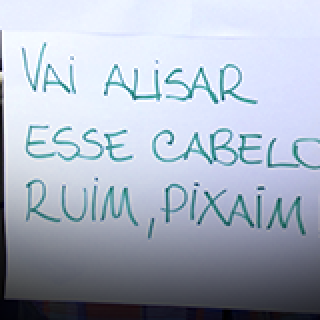 VAI ALISAR
ESSE CABELO
RUIM, PIXAIM